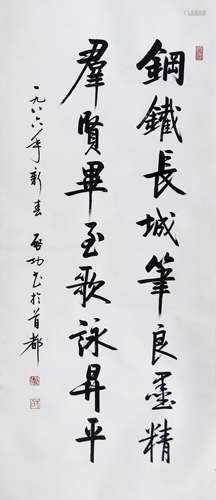 鋼鐵長城筆良墨精
羣賢畢至歌詠昇平
一九八六年新春 啟功書於首都